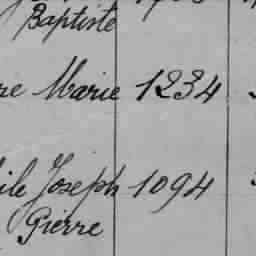 Baptiste
re Marie 1234
ile Joseph 1094
Pierre